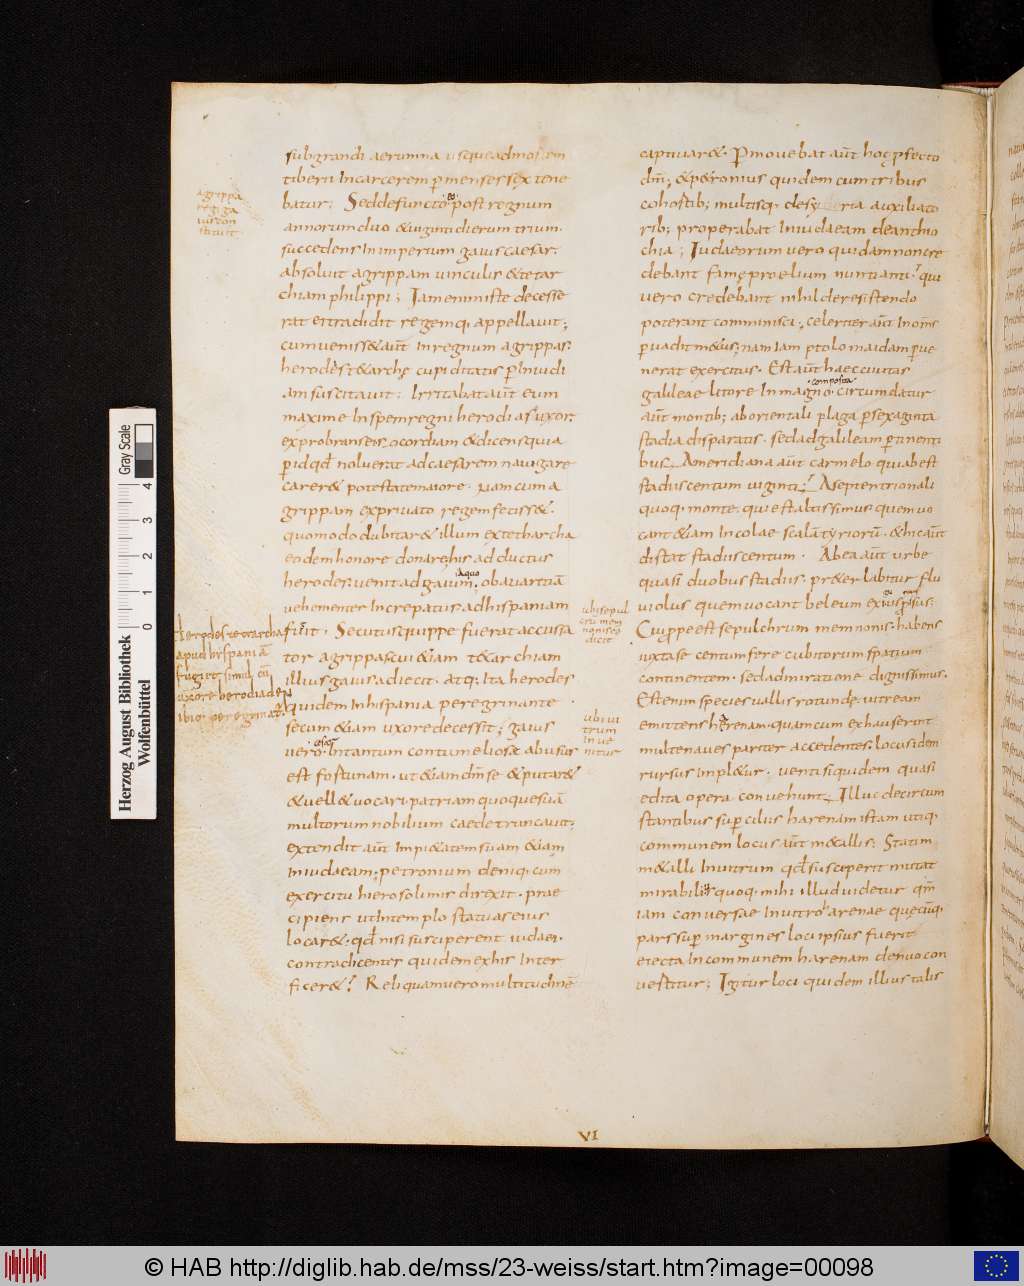 sub grandi aerumna usque ad mortem
tiberii In carcerem p menses sex tene
batur; Sed defuncto eo post regnum
annorum duo & uiginti dierum trium
succedens In imperium gaius caesar.
absoluit agrippam uinculis & tetar
chiam philippi; Iam enim iste decesse
rat ei tradidit regemq; appellauit;
cum uenisset aut In regnum agrippas.
herodes tetrarchę cupiditatis p Inuidi
am suscitauit; Irritabat aut eum
maxime In spem regni herodias uxor
exprobrans eius &dicens quia
p id qd noluerat ad caesarem nauigare
careret potestate maiore. nam cum a
grippam ex priuato regem fecisset.
quomodo dubitaret illum ex tetharcha
eodem honore donare; his adductus
herodes uenit ad gaium; a quo ob auaritiā
uehementer Increpatus ad hispaniam
fugit. Secutus quippe fuerat accusa
tor agrippas cui etiam tetarchiam
illius gaius adiecit. atq; Ita herodes
quidem In hispania peregrinante
secum etiam uxore decessit; gaius
uero cesar Intantum contumeliose abusus
est fortunam. ut etiam dm se & putaret
& uellet uocari. patriam quoque suā
multorum nobilium caede truncauit;
extendit aut Impietatem suam etiam
In iudaeam; petronium deniq; cum
exercitu hierosolimis direxit. prae
cipiens ut In templo statuas eius
locaret. qd nisi susciperent iudaei.
contradicentes quidem ex his Inter
ficeret; Reliquam uero multitudinē
agrippā
regiga
ius con
stituit
Herodes tetrarcha
apud hispaniā
fugiet simul cū
uxore herodiaden
ibiq; peregrinat
captiuaret. Pmouebat aut hoc pfecto
dm; & petronius quidem cum tribus
cohortib; multisq; de syria auxiliato
rib; properabat In iudaeam de antho
chia; Iudaeorum uero quidam non cre
debant famę proelium nuntianti; qui
uero credebant nihil de resistendo
poterant comminisci; celeriter aut In oms
puadit metus; nam Iam ptolomaidam pue
nerat exercitus. Est aut haec ciuitas
galileae litore In magno composita circumdatur
aut montib; ab orientali plaga p sexaginta
stadia disparatis. sed ad galileam ptinenti
bus. A meridiana aut carmelo qui abest
stadiis centum uiginti; A septentrionali
quoq; monte. qui est altissimus quem uo
cant etiam Incolae scalā tyriorū. & hic aut
distat stadiis centum. Ab ea aut urbe
quasi duobus stadiis. praeter labitur flu
uiolus quem uocant beleum exiguus
Cui ppe est sepulchrum memnonis. habens
iuxta se centum fere cubitorum spatium
continentem. sed admiratione dignissimus.
Est enim species uallis rotundę. uitream
emittens harenam. quam cum exhauserint
multe naues pariter accedentes. locus idem
rursus Impletur. uentis quidem quasi
edita opera conuehunt. Illuc de circum
stantibus supciliis harenam istam utiq;
communem locus aut metallis; Statim
metalli In uitrum qd susceperit mutat
mirabilius quoq; mihi illud uidetur qm
iam conuersae In uitro arenae quęcūq;
pars sup margines loci ipsius fuerit
eiecta In communem harenam denuo con
uertitur; Igitur loci quidem illius talis
ubi sepul
crū mem
nonis eē
dicit
ubi ui
trum
Inue
nitur
VI
Herzog August Bibliothek
Wolfenbüttel
Gray Scale
0 1 2 3 4
© HAB http://diglib.hab.de/mss/23-weiss/start.htm?image=00098